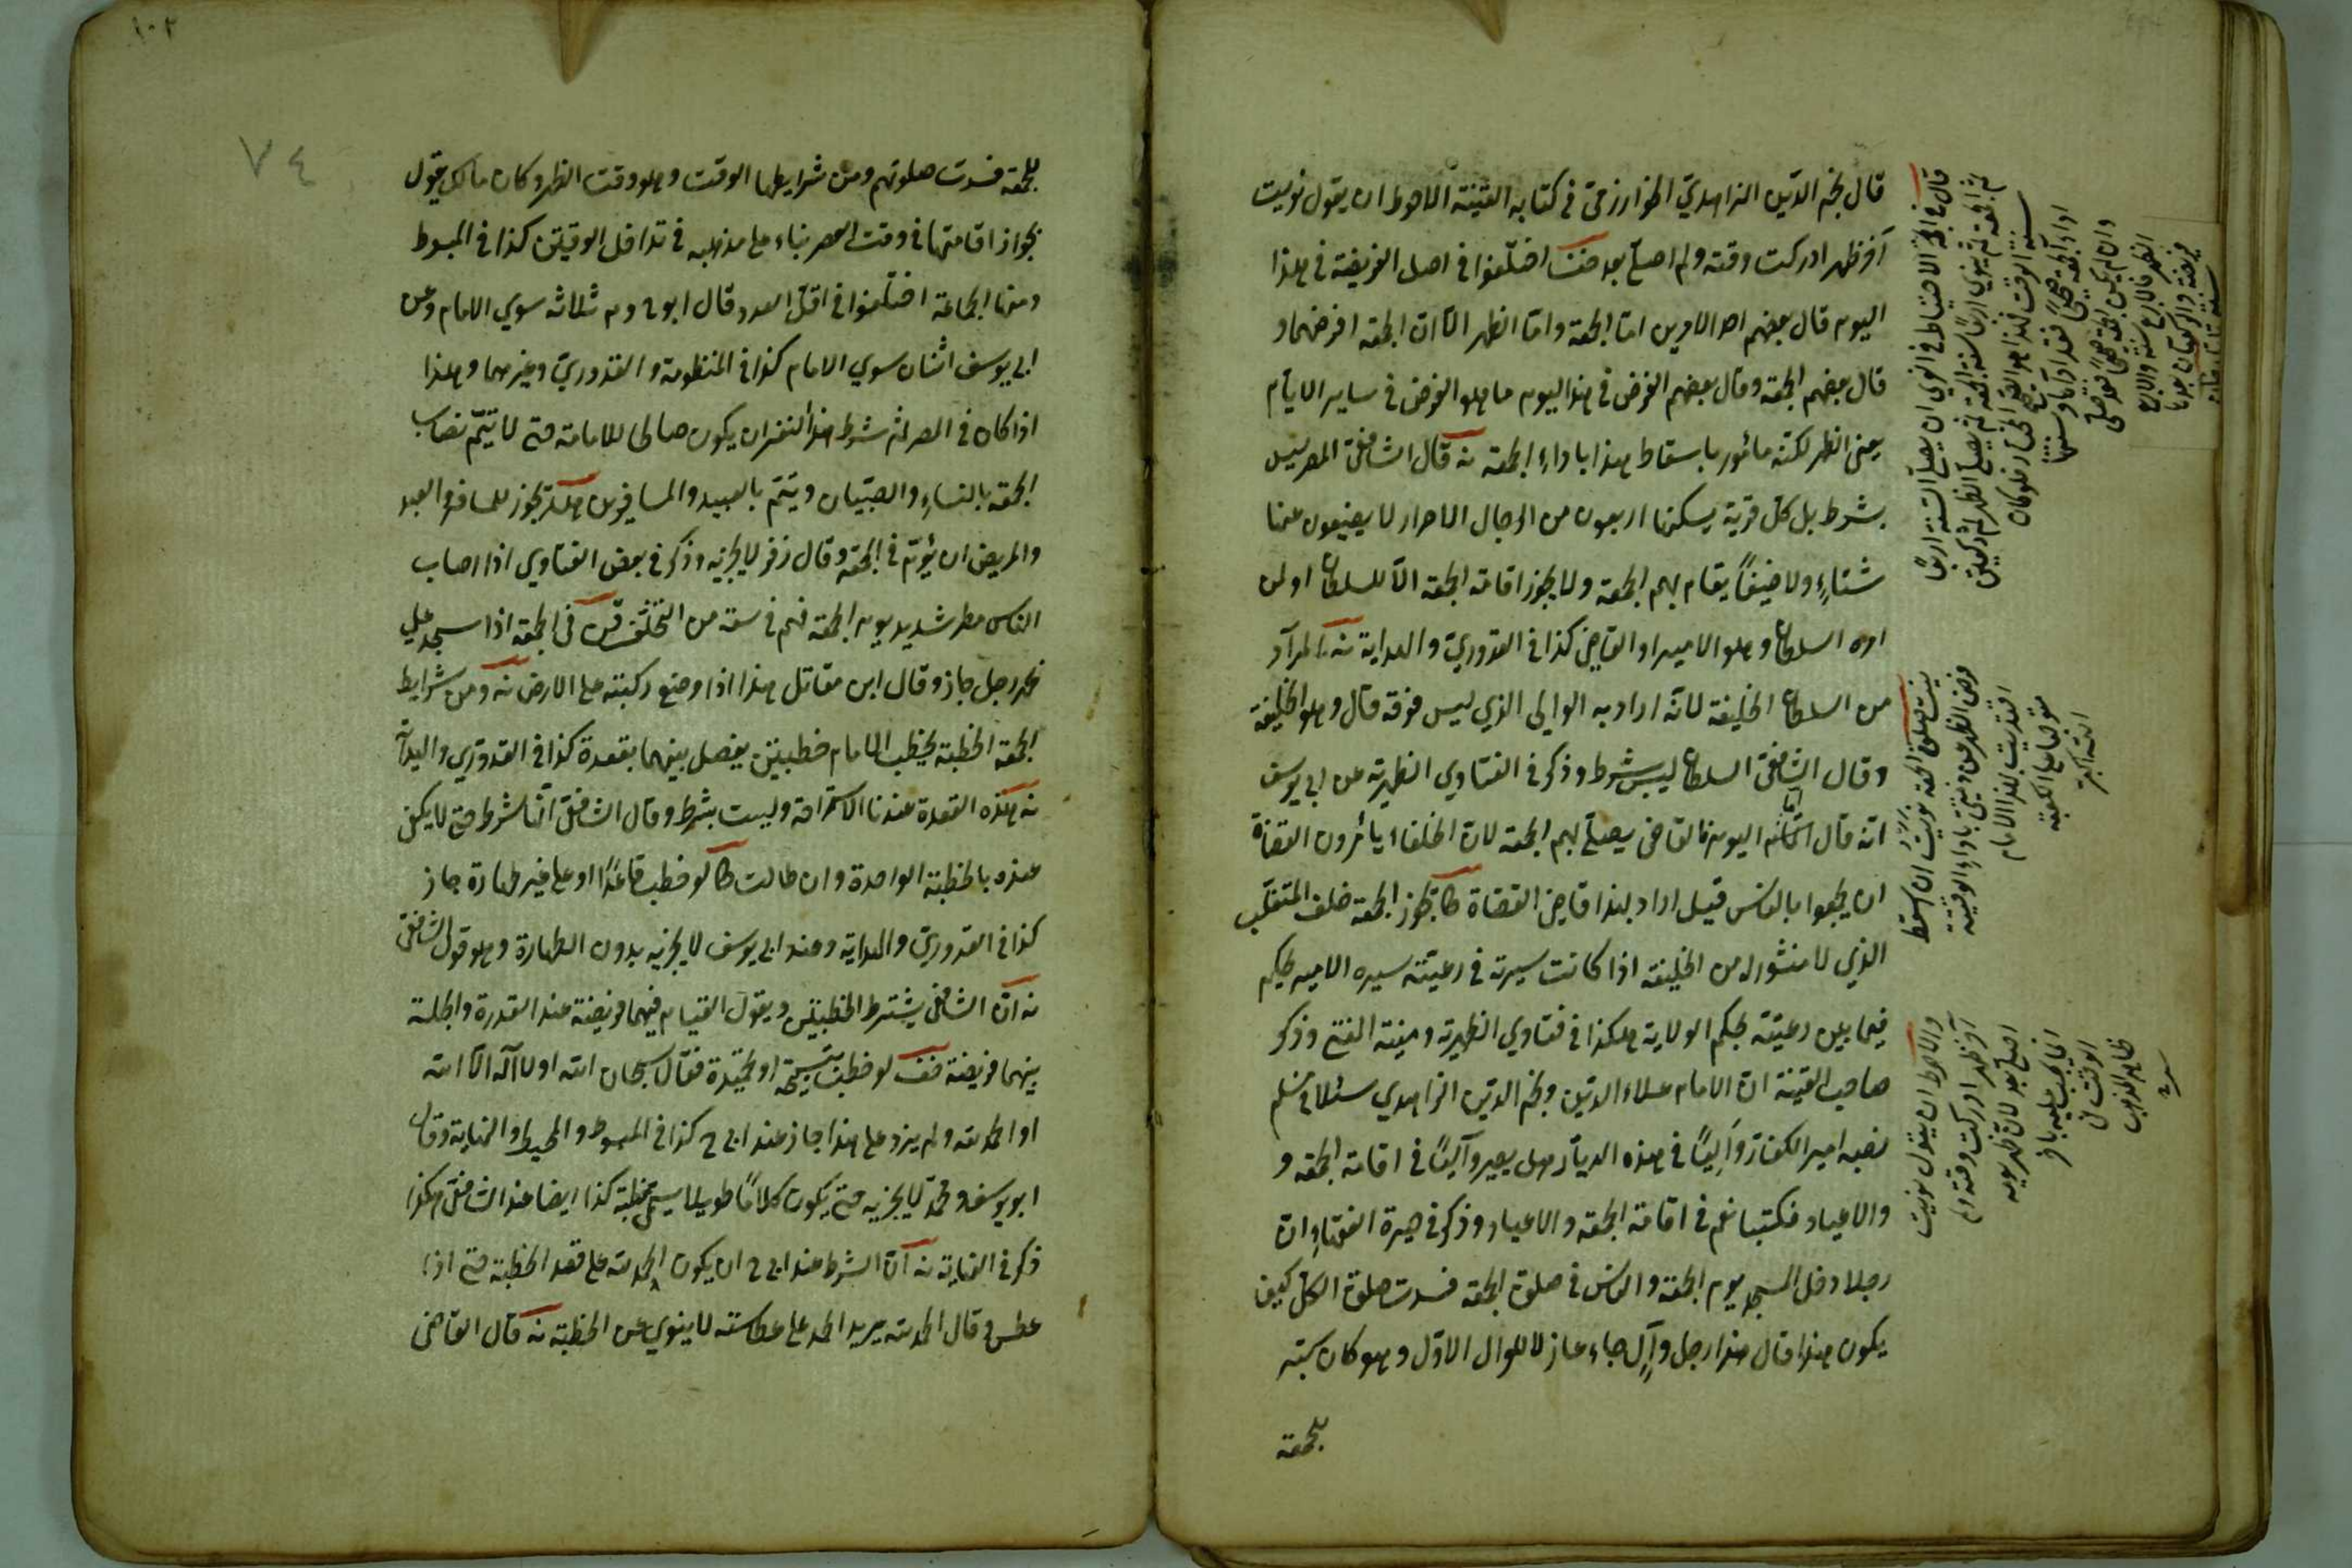 قال نجم الدين الزاهدي الخوارزمي في كتابه القنية الاحوط ان يقول نويت
آخر ظهر ادركت وقته ولم اصل بعد اختلفوا في اصل الفريضة في هذا
اليوم قال بعضهم احد الامرين اما الجمعة واما الظهر الا ان الجمعة افرضهما و
قال بعضهم الجمعة وقال بعضهم الفرض في هذا اليوم ما هو الفرض في ساير الايام
يعني الظهر لكنه مأمور باسقاط هذا باداء الجمعة نه قال الشافعي المصر ليس
بشرط بل كل قرية يسكنها اربعون من الرجال الاحرار لا يضيعون عنها
شتاء ولا ضيفا يقام بهم الجمعة ولا يجوز اقامة الجمعة الا للسلطان او لمن
امره السلطان وهو الامير او القاضي كذا في القدوري والهداية نه المراد
من السلطان الخليفة لانه اراد به الوالي الذي ليس فوقه قال وهو الخليفة
وقال الشافعي السلطان ليس بشرط وذكر في الفتاوي الظهيرية عن ابي يوسف
انه قال اما اليوم فالقاضي يصلي بهم الجمعة لان الخلفاء يأمرون القضاة
ان يجمعوا بالناس قيل اراد بهذا قاضي القضاة تجوز الجمعة خلف المتغلب
الذي لا منشور له من الخليفة اذا كانت سيرته في رعيته سيرة الامير يحكم
فيما بين رعيته بحكم الولاية هكذا في فتاوي الظهيرية ومنية المفتي وذكر
صاحب القنية ان الامام علاء الدين ونجم الدين الزاهدي سئلا في مسلم
نصبه امير الكفار واليا في هذه الديار هل يصير واليا في اقامة الجمعة و
والاعياد فكتبا نعم في اقامة الجمعة والاعياد وذكر في حيرة الفقهاء ان
رجلا دخل المسجد يوم الجمعة والناس في صلوة الجمعة فسدت صلوة الكل كيف
يكون هذا قال هذا رجل وال جاء عازلا للوال الاول وهو كان
للجمعة
قال في الاحتياط في القرى ان يصلي السنة اربعا
ثم الجمعة ثم ينوي اربعا سنة الجمعة ثم يصلي الظهر ثم ركعتين
سنة الوقت فهذا هو الصحيح المختار فلو كان
اداء الجمعة صحيحا فقد اداها وسنتها
وان لم يكن الجمعة صحيحا فقد صلى
الظهر فالاربع سنة والاربع
فريضة والركعتان بعدها
نية صلوة الجمعة نويت ان اسقط
فرض الظهر عن ذمتي باداء الوقتية
اقتديت بهذا الامام
متوجها الى الكعبة
الله اكبر
والاحوط ان يقول نويت
آخر ظهر ادركت وقته ولم
اصل بعد لان ظهر يومه
انما يجب عليه باخر
الوقت في
ظاهر المذهب
١٠٢
٧٤
للجمعة فسدت صلوتهم ومن شرايطها الوقت وهو وقت الظهر وكان مالك يقول
بجواز اقامتها في وقت العصر بناء على مذهبه في تداخل الوقتين كذا في المبسوط
ومنها الجماعة اختلفوا في اقل العدد قال ابو ح وم ثلاثة سوي الامام وعن
ابي يوسف اثنان سوي الامام كذا في المنظومة والقدوري وغيرهما وهذا
اذا كان في المصر ثم شرط هذا النفر ان يكون صالحا للامامة حتى لا يتم نصاب
الجمعة بالنساء والصبيان ويتم بالعبيد والمسافرين يجوز للمسافر والعبد
والمريض ان يؤم في الجمعة وقال زفر لا يجزيه وذكر في بعض الفتاوي اذا اصاب
الناس مطر شديد يوم الجمعة فهم في سعة من التخلف في الجمعة اذا سجد على
فخذ رجل جاز وقال ابن مقاتل هذا اذا وضع ركبته على الارض نه ومن شرايط
الجمعة الخطبة يخطب الامام خطبتين يفصل بينهما بقعدة كذا في القدوري والهداية
نه هذه القعدة عندنا للاستراحة وليست بشرط وقال الشافعي انها شرط حتى لا يكفي
عنده بالخطبة الواحدة وان طالت لو خطب قاعدا او على غير طهارة جاز
كذا في القدوري والهداية وعند ابي يوسف لا يجزيه بدون الطهارة وهو قول الشافعي
نه ان الشافعي يشترط الخطبتين ويقول القيام فيهما فريضة عند القدرة والجلسة
بينهما فريضة لو خطب بتسبيحة او تحميدة فقال سبحان الله او لا اله الا الله
او الحمد لله ولم يزد على هذا جاز عند ابي ح كذا في المبسوط والمحيط والنهاية وقال
ابو يوسف ومحمد لا يجزيه حتى يكون كلاما طويلا يسمى خطبة كذا ايضا عند الشافعي هكذا
ذكر في النهاية نه ان الشرط عند ابي ح ان يكون الحمد لله على قصد الخطبة حتى اذا
عطس وقال الحمد لله يريد الحمد على عطاسته لا ينوي عن الخطبة نه قال القاضي